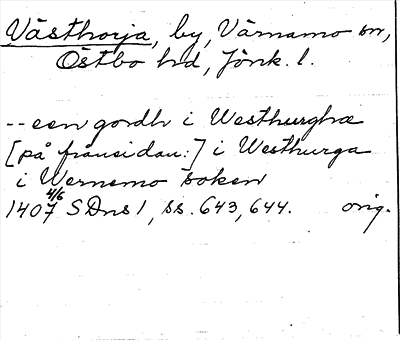 Västhorja, by, Värnamo sn,
Östbo hd, Jönk. l.
-- een gordh i Westhurghæ
[på frånsidan:] i Westhurga
i Wernemo soken
1407 4/6 SDns 1, ss. 643, 644. orig.